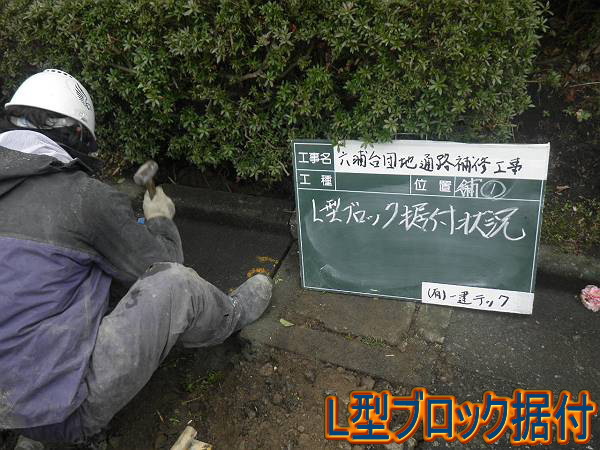 工事名 六浦台団地通路補修工事
工種 位置 舗①
L型ブロック据付状況
(有)一建テック
L型ブロック据付